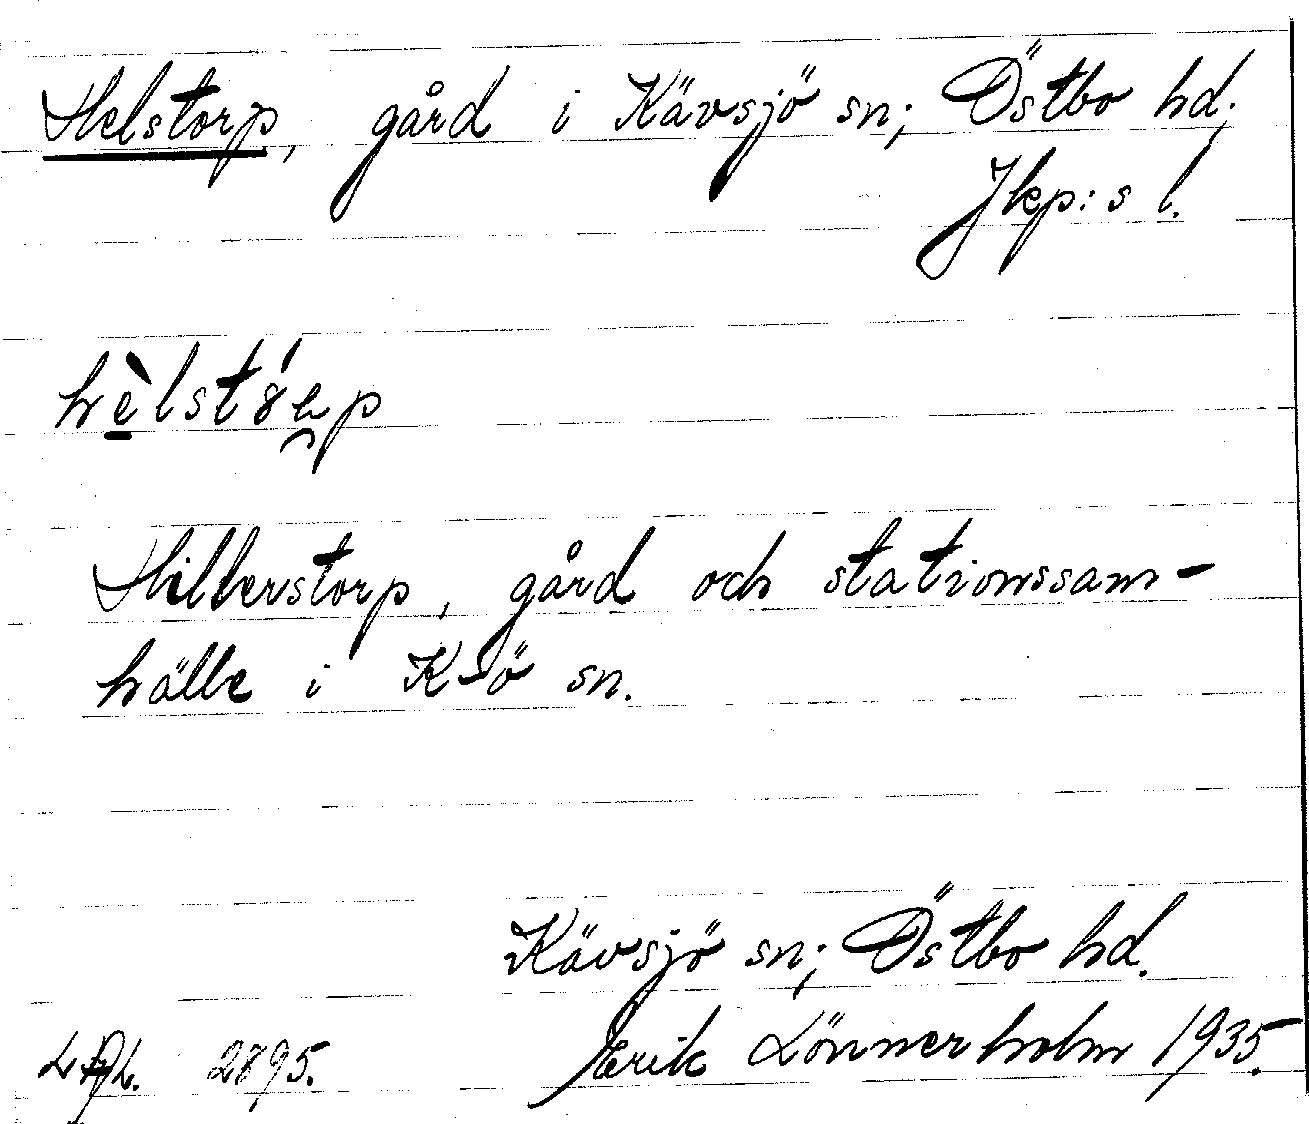 Helstorp, gård i Kävsjö sn; Östbo hd;
Jkp:s l.
hèlstórp
Hillerstorp, gård och stationssam-
hälle i K-ö sn.
Kävsjö sn; Östbo hd.
2895. Erik Lönnerholm 1935.